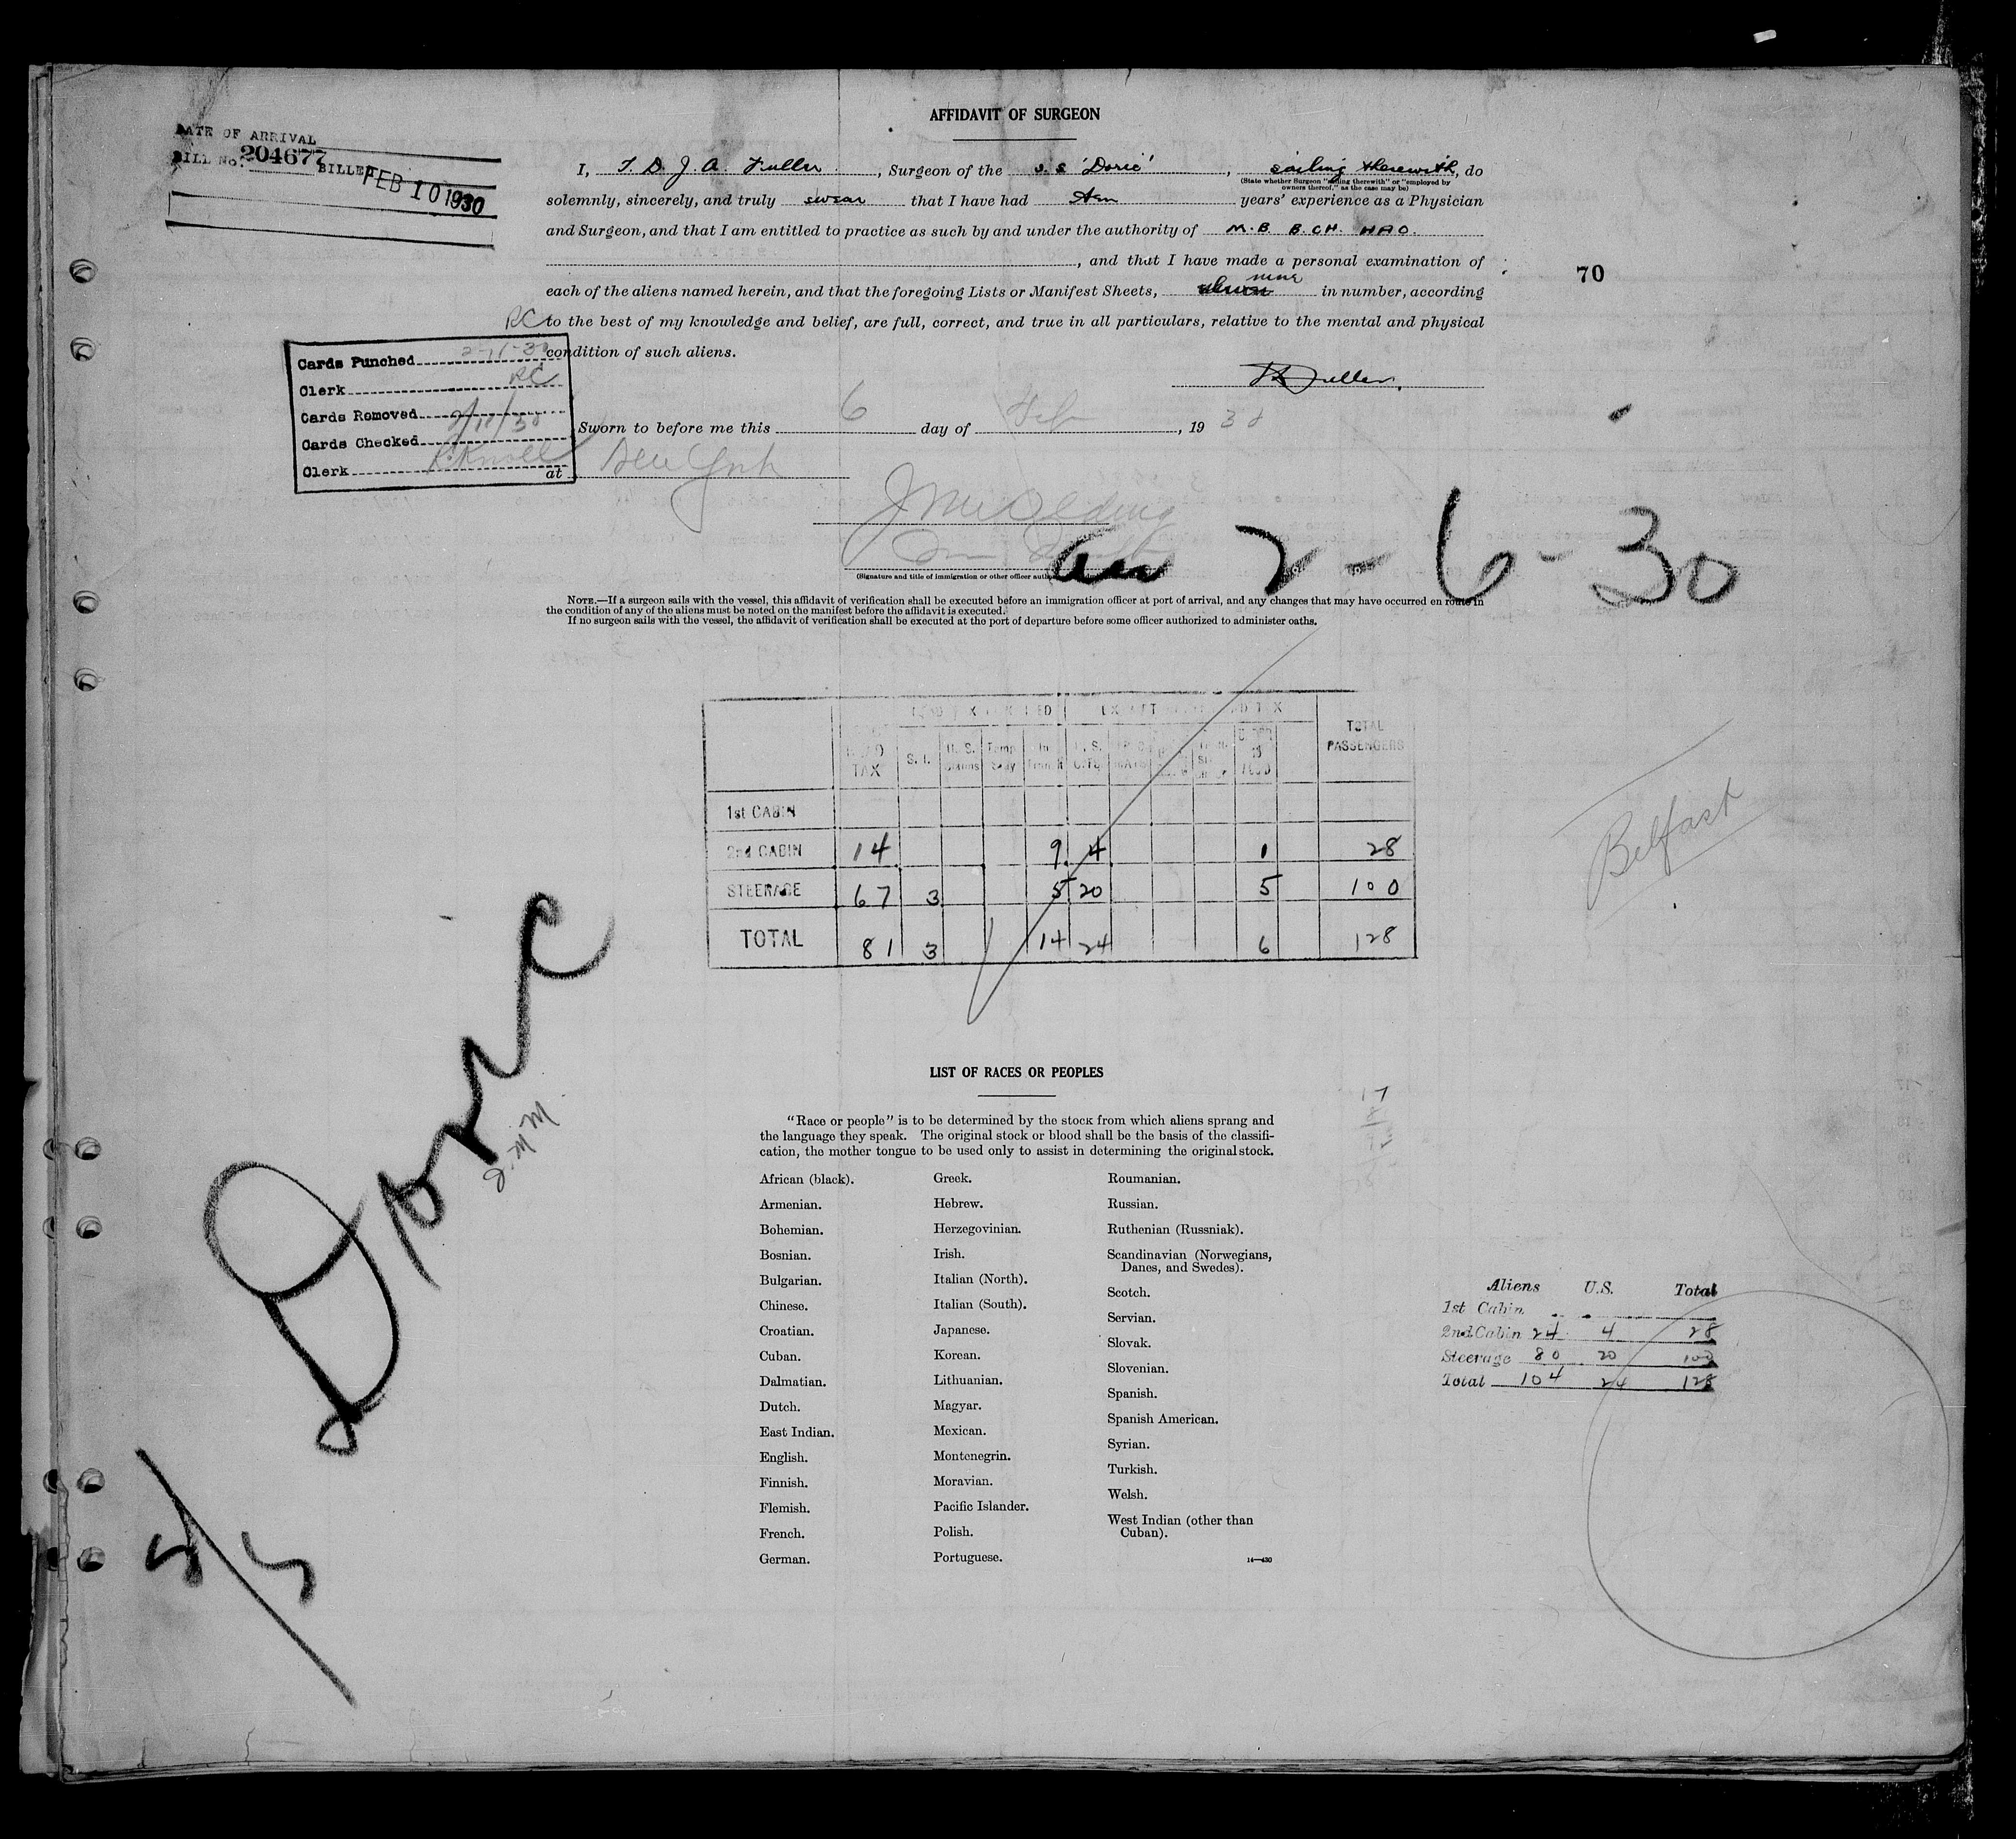 AFFIDAVIT OF SURGEON
DATE OF ARRIVAL
BILL No. 204677 BILLED FEB 10 1930
I, T. D. J. A. Fuller, Surgeon of the S.S 'Doric', sailing therewith, do
(State whether Surgeon "sailing therewith" or "employed by
owners thereof," as the case may be)
solemnly, sincerely, and truly swear that I have had ten years' experience as a Physician
and Surgeon, and that I am entitled to practice as such by and under the authority of M.B. B.CH. BAO.
, and that I have made a personal examination of
70
nine
each of the aliens named herein, and that the foregoing Lists or Manifest Sheets, eleven in number, according
RC to the best of my knowledge and belief, are full, correct, and true in all particulars, relative to the mental and physical
condition of such aliens.
Cards Punched 2-11-30
Clerk RC
Cards Removed
Cards Checked 2/11/30
Clerk
Fuller.
Sworn to before me this 6 day of Feb, 1930
at New York
(Signature and title of immigration or other officer
Arr 2-6-30
NOTE.—If a surgeon sails with the vessel, this affidavit of verification shall be executed before an immigration officer at port of arrival, and any changes that may have occurred en route in
the condition of any of the aliens must be noted on the manifest before the affidavit is executed.
If no surgeon sails with the vessel, the affidavit of verification shall be executed at the port of departure before some officer authorized to administer oaths.
TOTAL
PASSENGERS
HEAD TAX S.I. U.S. Temp. Stay In Transit U.S. Citz.
1st CABIN
2nd CABIN 14 9 4 1 28
STEERAGE 67 3 5 20 5 100
TOTAL 81 3 14 24 6 128
Belfast
Doric
J.M.M.
5/5
LIST OF RACES OR PEOPLES
17
"Race or people" is to be determined by the stock from which aliens sprang and
the language they speak. The original stock or blood shall be the basis of the classifi-
cation, the mother tongue to be used only to assist in determining the original stock.
African (black).
Armenian.
Bohemian.
Bosnian.
Bulgarian.
Chinese.
Croatian.
Cuban.
Dalmatian.
Dutch.
East Indian.
English.
Finnish.
Flemish.
French.
German.
Greek.
Hebrew.
Herzegovinian.
Irish.
Italian (North).
Italian (South).
Japanese.
Korean.
Lithuanian.
Magyar.
Mexican.
Montenegrin.
Moravian.
Pacific Islander.
Polish.
Portuguese.
Roumanian.
Russian.
Ruthenian (Russniak).
Scandinavian (Norwegians,
Danes, and Swedes).
Scotch.
Servian.
Slovak.
Slovenian.
Spanish.
Spanish American.
Syrian.
Turkish.
Welsh.
West Indian (other than
Cuban).
14—430
Aliens U.S. Total
1st Cabin
2nd Cabin 24 4 28
Steerage 80 20 100
Total 104 24 128